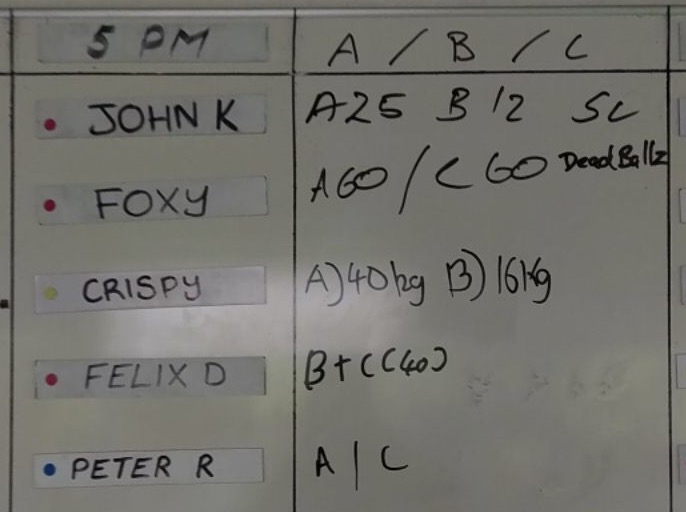 5 PM A / B / C
JOHN K A25 B 12 SC
FOXY A60 / C 60 Dead Ballz
CRISPY A) 40kg B) 16kg
FELIX D B + C (40)
PETER R A | C